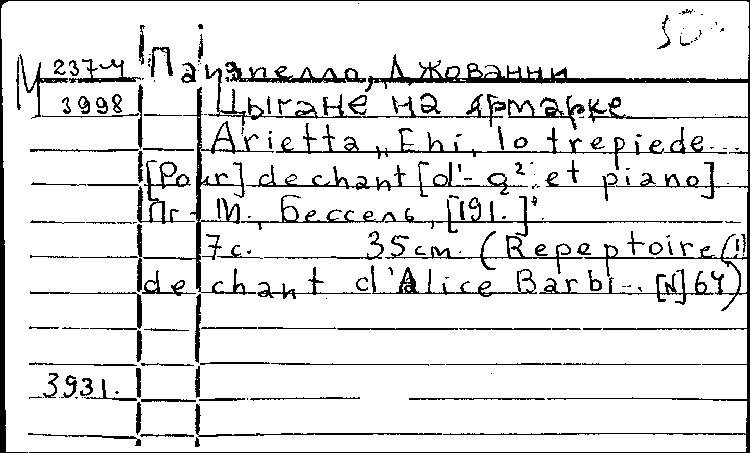 50.
М 237-4 Паизпелло, Джованни
3998 Цыгане на ярмарке
Arietta „Ehi, lo trepiede...
[Pour] de chant [d'- g² et piano]
Пг - М., Бессель, [191.]
7 с. 35 см. (Repeptoire (!)
de chant d'Alice Barbi... [N] 64)
3931.